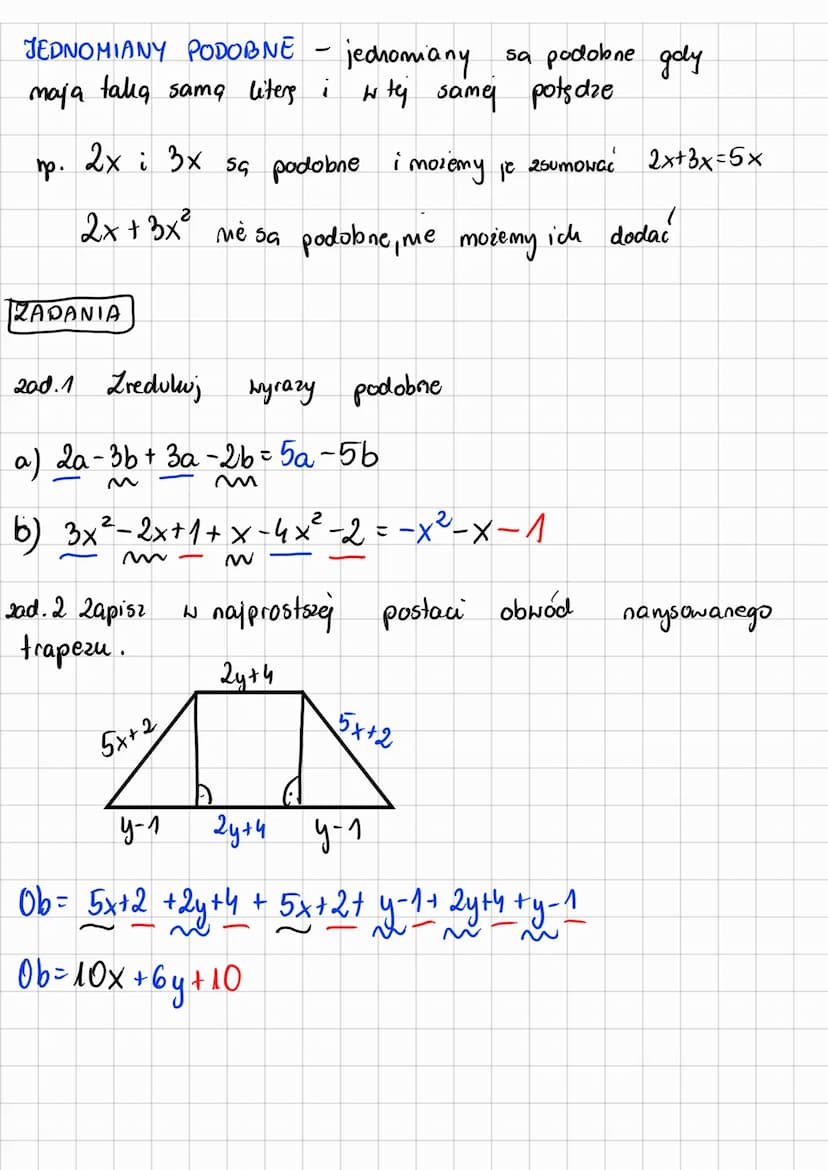 JEDNOMIANY PODOBNE - jednomiany są podobne gdy
mają taką samą literę i w tej samej potędze
np. 2x i 3x są podobne i możemy je zsumować 2x+3x=5x
2x + 3x² nie są podobne, nie możemy ich dodać
ZADANIA
zad.1 Zredukuj wyrazy podobne
a) 2a-3b+3a-2b=5a-5b
b) 3x²-2x+1+x-4x²-2=-x²-x-1
zad.2 Zapisz w najprostszej postaci obwód narysowanego
trapezu.
2y+4
5x+2
5x+2
y-1 2y+4 y-1
Ob= 5x+2 +2y+4 + 5x+2+ y-1+ 2y+4 +y-1
Ob=10x+6y+10